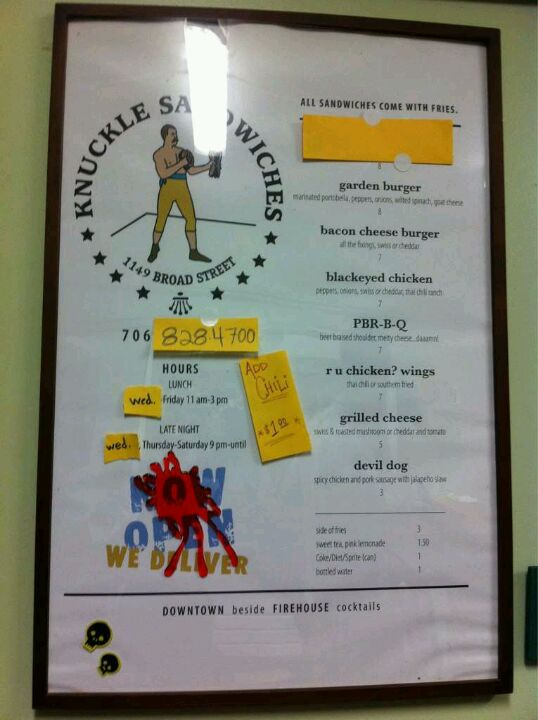 KNUCKLE SANDWICHES
1149 BROAD STREET
706 828 4700
HOURS
LUNCH
wed. Friday 11 am-3 pm
LATE NIGHT
wed. , Thursday-Saturday 9 pm-until
ADD
CHILI
*$1.00*
NOW
OPEN
WE DELIVER
ALL SANDWICHES COME WITH FRIES.
8
garden burger
marinated portobella, peppers, onions, wilted spinach, goat cheese
8
bacon cheese burger
all the fixings, swiss or cheddar
7
blackeyed chicken
peppers, onions, swiss or cheddar, thai chili ranch
7
PBR-B-Q
beer braised shoulder, melty cheese...daaamn!
7
r u chicken? wings
thai chili or southern fried
7
grilled cheese
swiss & roasted mushroom or cheddar and tomato
5
devil dog
spicy chicken and pork sausage with jalapeño slaw
3
side of fries 3
sweet tea, pink lemonade 1.50
Coke/Diet/Sprite (can) 1
bottled water 1
DOWNTOWN beside FIREHOUSE cocktails